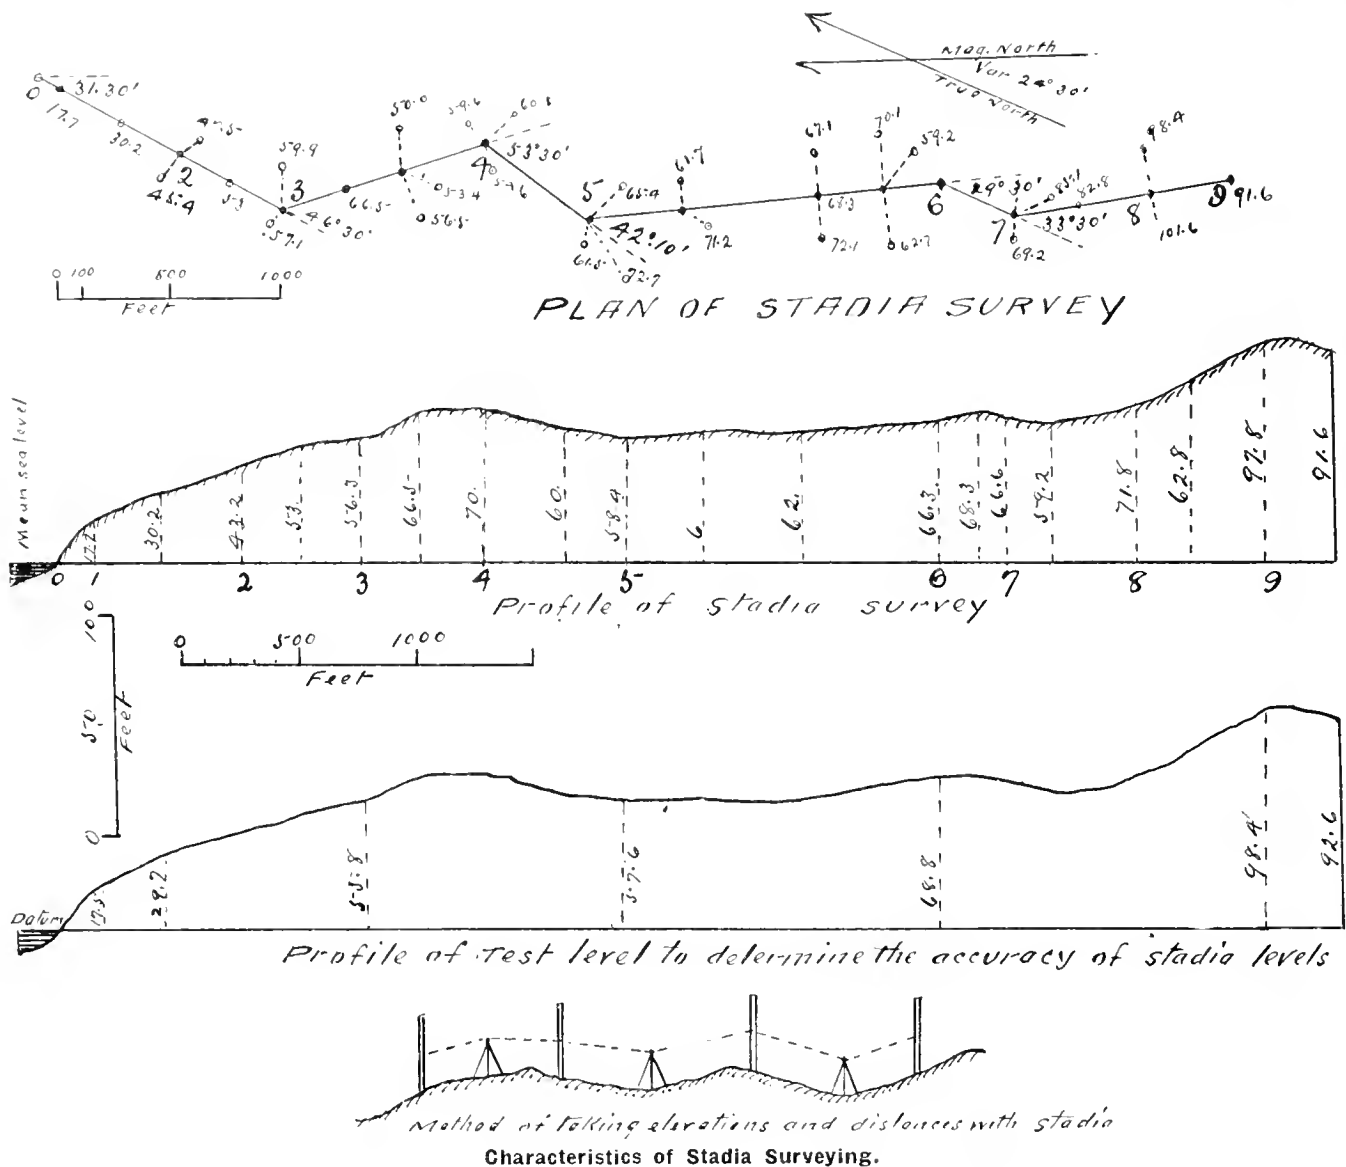 Mag. North
Var 24° 30'
True North
0
31.30'
17.7
30.2
2
45.4
53
59.9
3
57.1
46° 30'
66.5
50.0
53.4
56.5
59.6
60.8
4
53° 30'
5
65.9
61.5
42° 10'
61.7
71.2
67.1
68.3
72.1
70.1
59.2
62.7
6
29° 30'
7
69.2
85.1
82.8
33° 30'
98.4
8
101.6
9 91.6
0 100 500 1000
Feet
PLAN OF STADIA SURVEY
Mean sea level
30.2
43.2
53
56.3
66.5
70.
60
58.4
6
62.
66.3
68.3
66.6
59.2
71.8
62.8
97.8
91.6
0 1 2 3 4 5 6 7 8 9
Profile of Stadia survey
100
50
0
Feet
0 500 1000
Feet
Datum
17.5
29.2
55.8
57.6
68.8
98.4
92.6
Profile of Test level to determine the accuracy of stadia levels
Method of taking elevations and distances with stadia
Characteristics of Stadia Surveying.